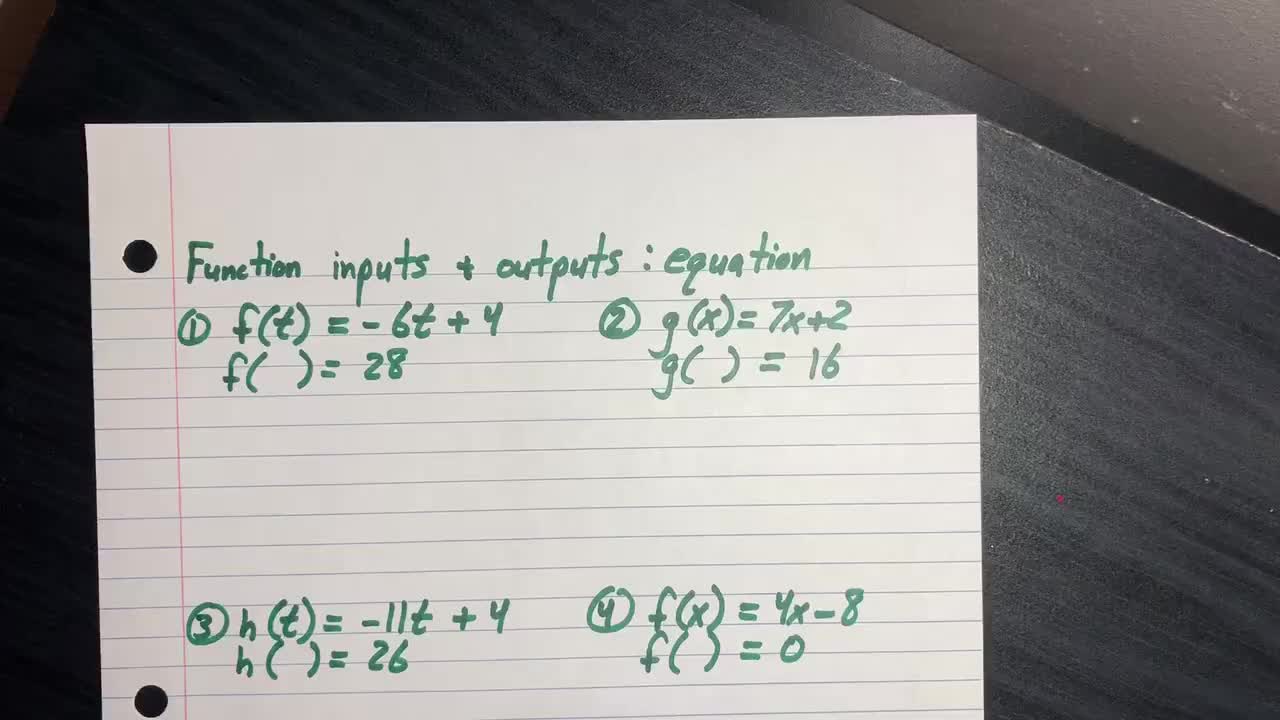 Function inputs + outputs : equation
① f(t) = -6t + 4
f( ) = 28
② g(x) = 7x+2
g( ) = 16
③ h(t) = -11t + 4
h( ) = 26
④ f(x) = 4x-8
f( ) = 0